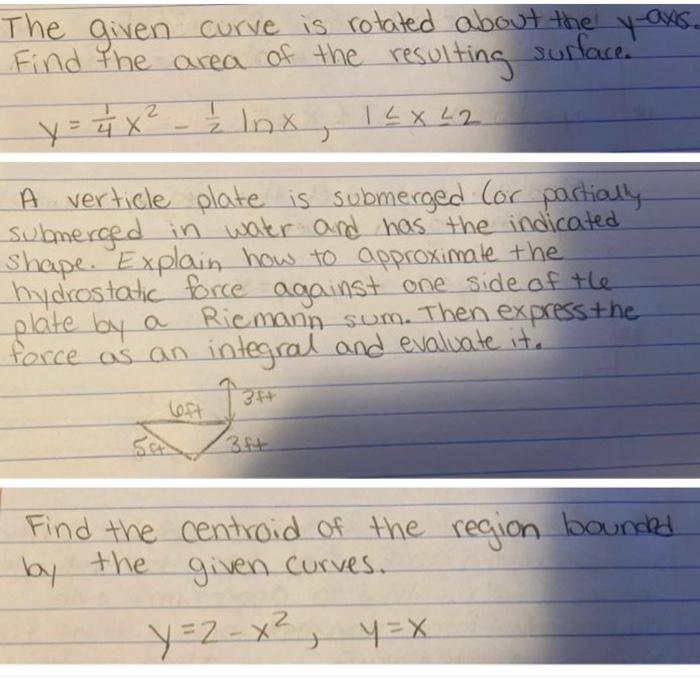 The given curve is rotated about the y-axis.
Find the area of the resulting surface.
y = 1/4 x² - 1/2 ln x, 1 ≤ x ≤ 2
A verticle plate is submerged (or partially
submerged in water and has the indicated
shape. Explain how to approximate the
hydrostatic force against one side of the
plate by a Riemann sum. Then express the
force as an integral and evaluate it.
3ft
6ft
5ft
3ft
Find the centroid of the region bounded
by the given curves.
y=2-x², y=x